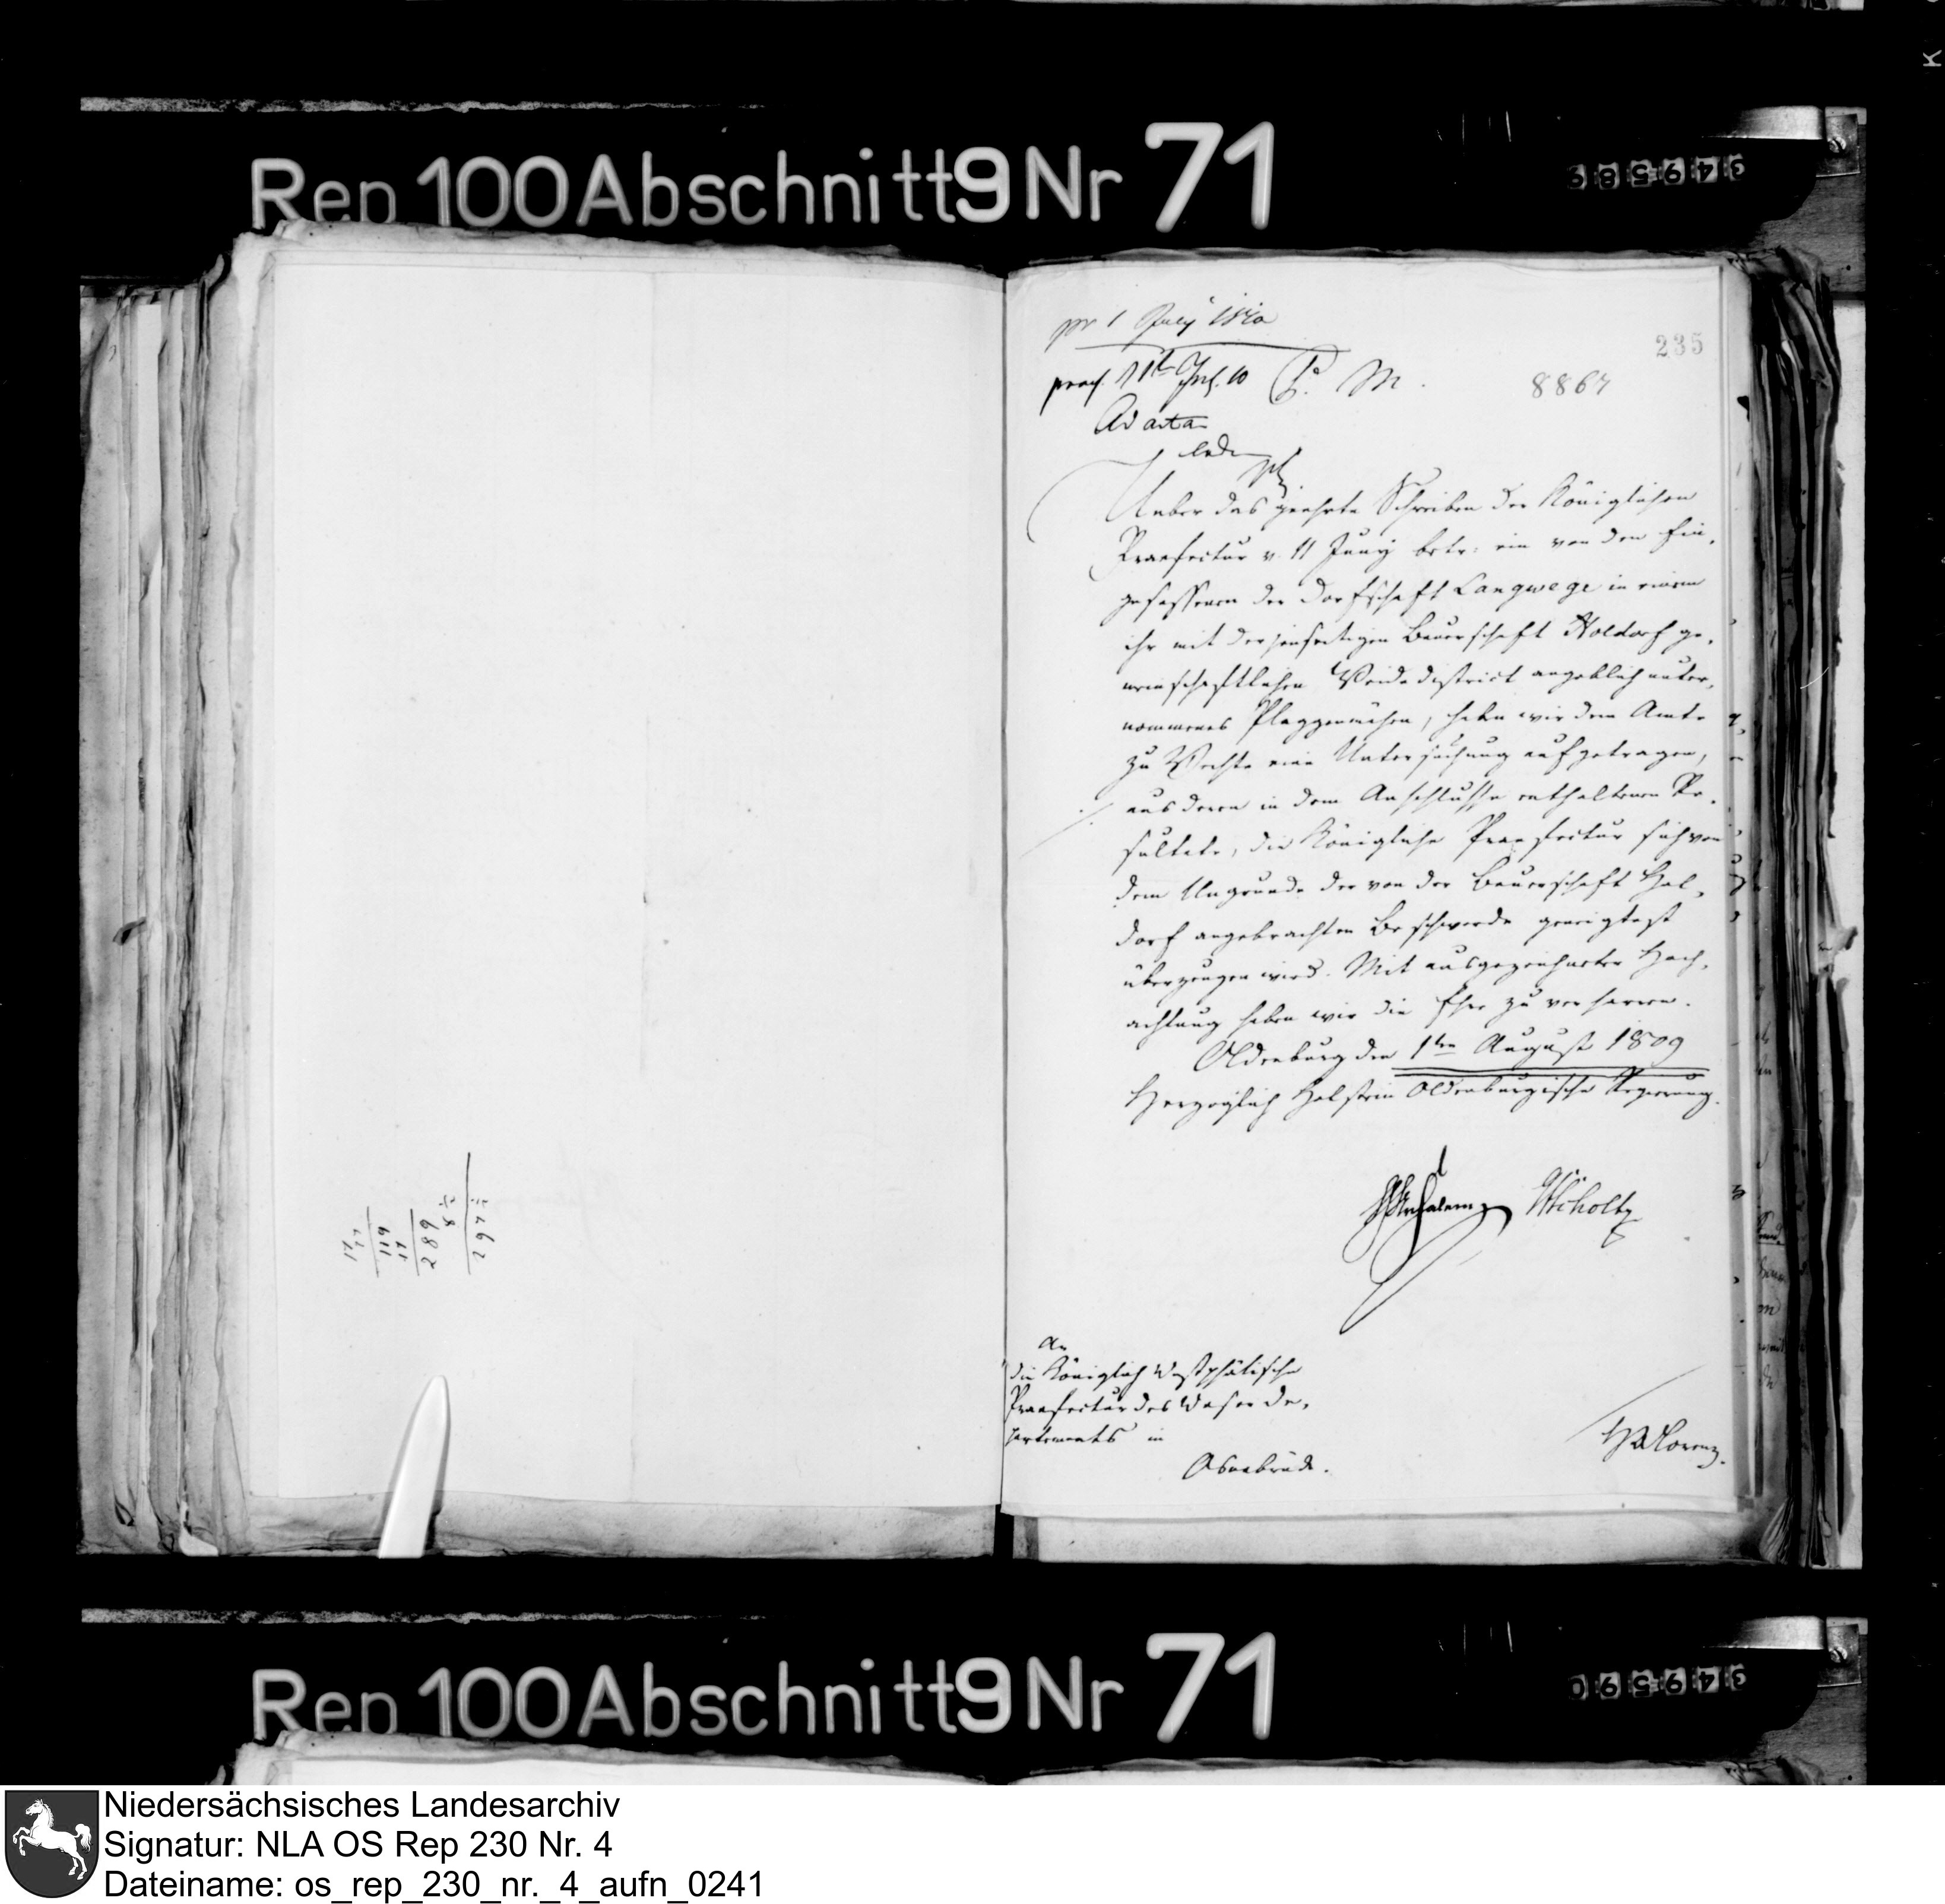 Rep 100 Abschnitt 9 Nr 71
349589
pr 1 July 1810
235
praes. 11t Jul. 10 P. M.
8867
Ad acta
Ueber das geehrte Schreiben der Königlichen
Praefectur v. 11 Juny betr: ein von den Ein,
gesessenen der Dorfschaft Langwege in einem
ihr mit der jenseitigen Bauerschaft Holdorf ge,
meinschaftlichen Weidedistrict angeblich unter,
nommenes Plaggenmähen, haben wir dem Amte
zu Vechte eine Untersuchung aufgetragen,
aus deren in dem Anschlusse enthaltenen Re,
sultate, die Königliche Praefectur sich von
dem Ungrunde der von der Bauerschaft Hol,
dorf angebrachten Beschwerde geneigtest
überzeugen wird. Mit ausgezeichneter Hoch,
achtung haben wir die Ehre zu verharren.
Oldenburg den 1ten August 1809
Herzoglich Holstein Oldenburgische Regierung.
Halem Scholtz
An
die Königlich Westphälische
Praefectur des Weser De,
partements in
Osnabrück.
Lorenz.
289
119
17
Rep 100 Abschnitt 9 Nr 71
349590
Niedersächsisches Landesarchiv
Signatur: NLA OS Rep 230 Nr. 4
Dateiname: os_rep_230_nr._4_aufn_0241